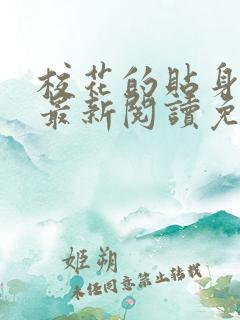 校花的貼身
最新閱讀免
姬朔
未经同意禁止转载